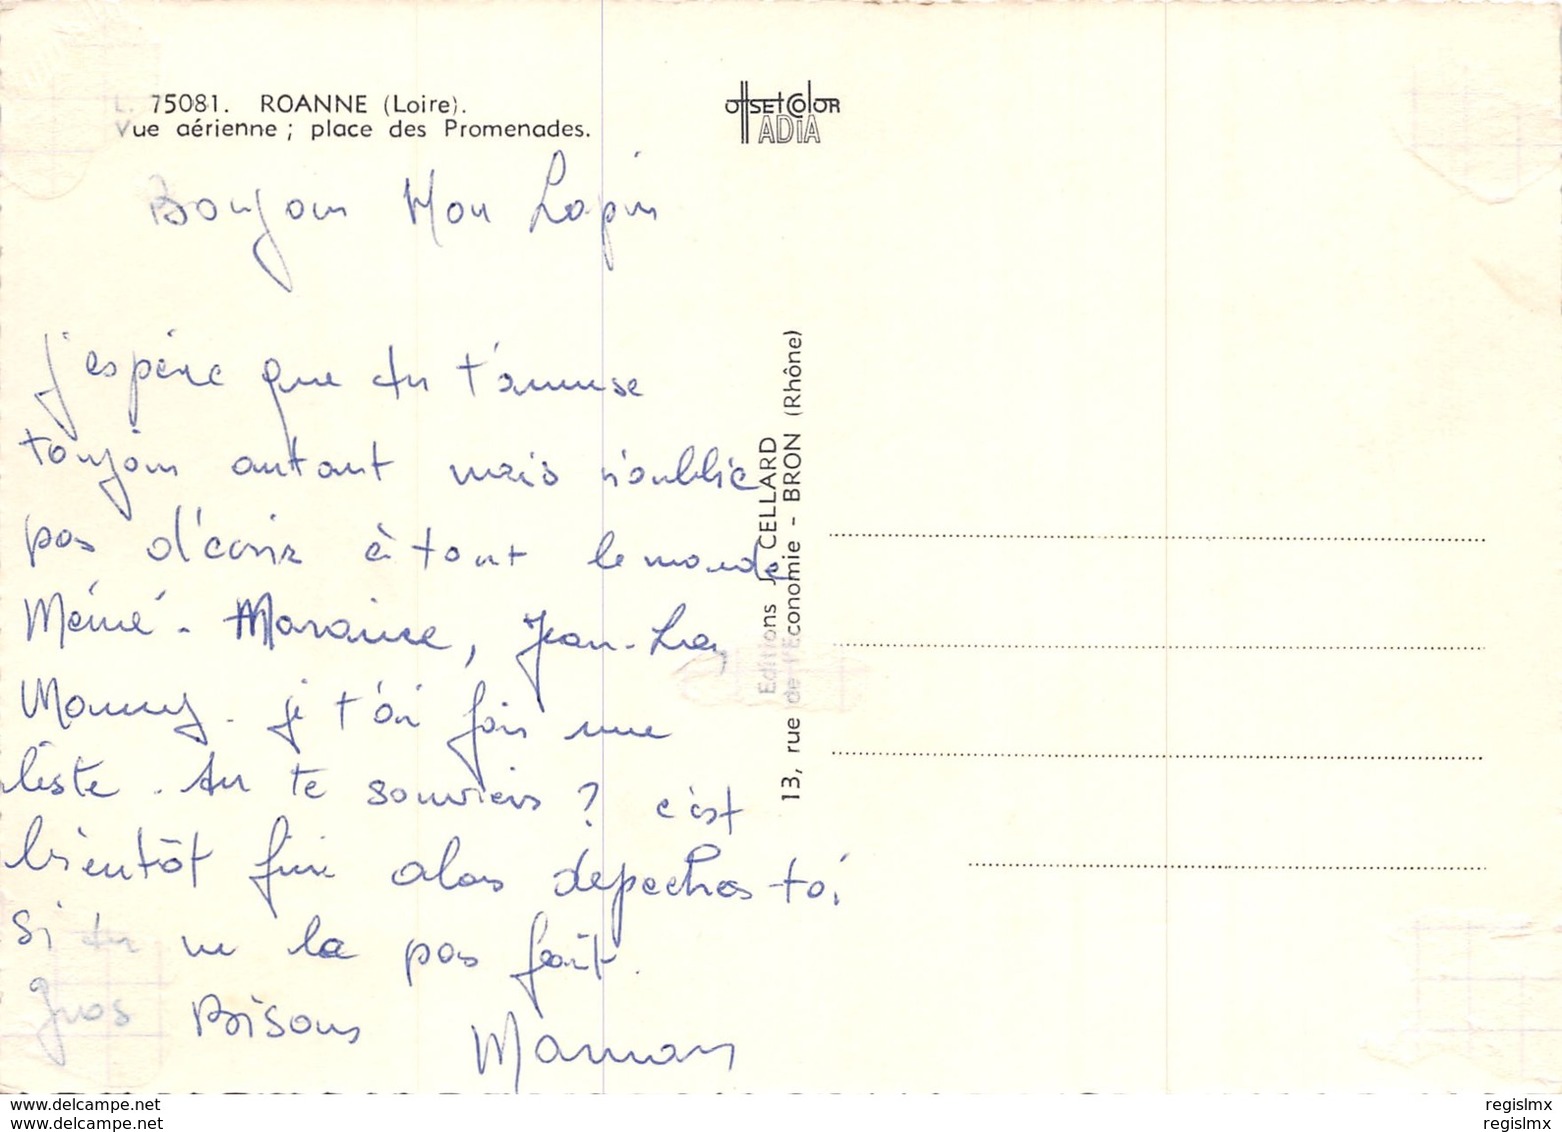 L. 75081. ROANNE (Loire).
Vue aérienne ; place des Promenades.
OffsetColor
ADIA
Bonjour Mon Lapin
j'espère que tu t'amuse
toujours autant mais n'oublie
pas d'écrire à tout le monde
Mémé - , Jean-Luc,
je t'ai fais une
liste. tu te souviens ? c'est
bientôt fini alors dépeches-toi
si tu ne la pas fait.
Gros Bisous Maman
Editions J. CELLARD
13, rue de l'Economie - BRON (Rhône)
www.delcampe.net
www.delcampe.net
regislmx
regislmx